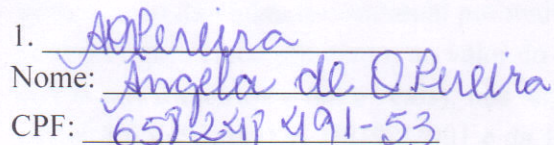 1. AOPereira
Nome: Angela de O Pereira
CPF: 658 248 491-53